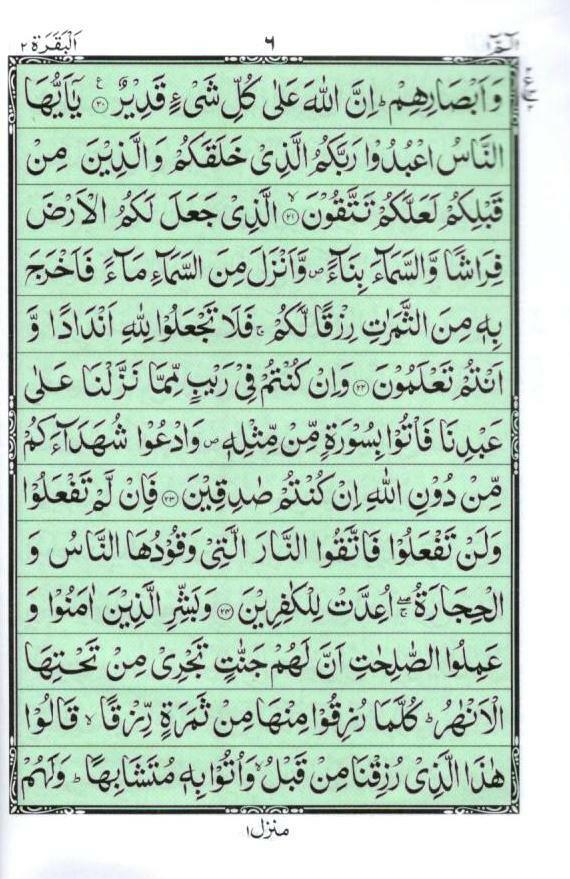 الٓمّٓ ١ ٦ اَلْبَقَرَة ٢
وَاَبْصَارِهِمْ ؕ اِنَّ اللّٰهَ عَلٰى كُلِّ شَیْءٍ قَدِیْرٌ ﴿۲۰﴾ یٰۤاَیُّهَا
النَّاسُ اعْبُدُوْا رَبَّكُمُ الَّذِیْ خَلَقَكُمْ وَالَّذِیْنَ مِنْ
قَبْلِكُمْ لَعَلَّكُمْ تَتَّقُوْنَ ﴿۲۱﴾ۙ الَّذِیْ جَعَلَ لَكُمُ الْاَرْضَ
فِرَاشًا وَّالسَّمَآءَ بِنَآءً ۪ وَّاَنْزَلَ مِنَ السَّمَآءِ مَآءً فَاَخْرَجَ
بِهٖ مِنَ الثَّمَرٰتِ رِزْقًا لَّكُمْ ۚ فَلَا تَجْعَلُوْا لِلّٰهِ اَنْدَادًا وَّ
اَنْتُمْ تَعْلَمُوْنَ ﴿۲۲﴾ وَاِنْ كُنْتُمْ فِیْ رَیْبٍ مِّمَّا نَزَّلْنَا عَلٰى
عَبْدِنَا فَاْتُوْا بِسُوْرَةٍ مِّنْ مِّثْلِهٖ ۪ وَادْعُوْا شُهَدَآءَكُمْ
مِّنْ دُوْنِ اللّٰهِ اِنْ كُنْتُمْ صٰدِقِیْنَ ﴿۲۳﴾ فَاِنْ لَّمْ تَفْعَلُوْا
وَلَنْ تَفْعَلُوْا فَاتَّقُوا النَّارَ الَّتِیْ وَقُوْدُهَا النَّاسُ وَ
الْحِجَارَةُ ۖۚ اُعِدَّتْ لِلْكٰفِرِیْنَ ﴿۲۴﴾ وَبَشِّرِ الَّذِیْنَ اٰمَنُوْا وَ
عَمِلُوا الصّٰلِحٰتِ اَنَّ لَهُمْ جَنّٰتٍ تَجْرِیْ مِنْ تَحْتِهَا
الْاَنْهٰرُ ؕ كُلَّمَا رُزِقُوْا مِنْهَا مِنْ ثَمَرَةٍ رِّزْقًا ۙ قَالُوْا
هٰذَا الَّذِیْ رُزِقْنَا مِنْ قَبْلُ ۙ وَاُتُوْا بِهٖ مُتَشَابِهًا ؕ وَلَهُمْ
منزل ١